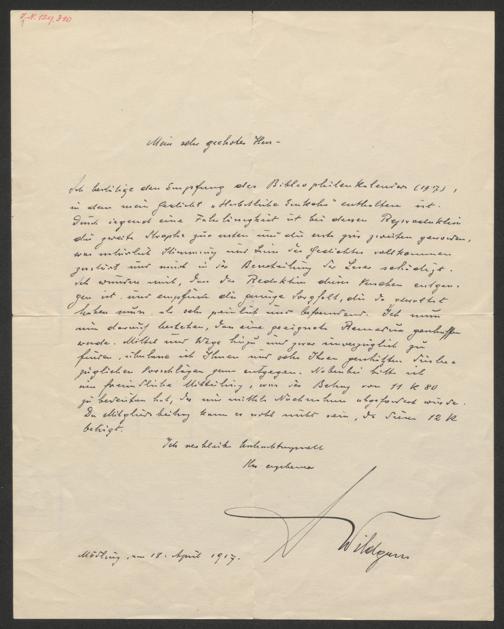 I. N. 129.390
Mein sehr geehrter Herr –
Ich bestätige den Empfang des Bibliophilenkalenders (1917),
in dem mein Gedicht „Herbstliche Einkehr“ enthalten ist.
Durch irgend eine Fahrlässigkeit ist bei dessen Reproduktion
die zweite Strophe zur ersten und die erste zur zweiten geworden,
was natürlich Stimmung und Sinn des Gedichtes vollkommen
zerstört und mich in der Beurteilung der Leser schädigt.
Ich wundere mich, dass der Redaktion dieses Versehen entgan-
gen ist und empfinde die geringe Sorgfalt, die da gewaltet
haben muss, als sehr peinlich und befremdend. Ich muss
nun darauf bestehen, dass eine geeignete Remedur geschaffen
werde. Mittel und Wege hiezu und zwar unverzüglich zu
finden, überlasse ich Ihnen und sehe Ihren geschätzten diesbe-
züglichen Vorschlägen gerne entgegen. Nebenbei bitte ich
um freundliche Mitteilung, was der Betrag von 11 K 80
zu bedeuten hat, der mir mittels Nachnahme abgefordert wurde.
Der Mitgliedsbeitrag kann es wohl nicht sein, da dieser 12 K
beträgt.
Ich verbleibe hochachtungsvoll
Ihr ergebener
Wildgans
Mödling, am 18. April 1917.